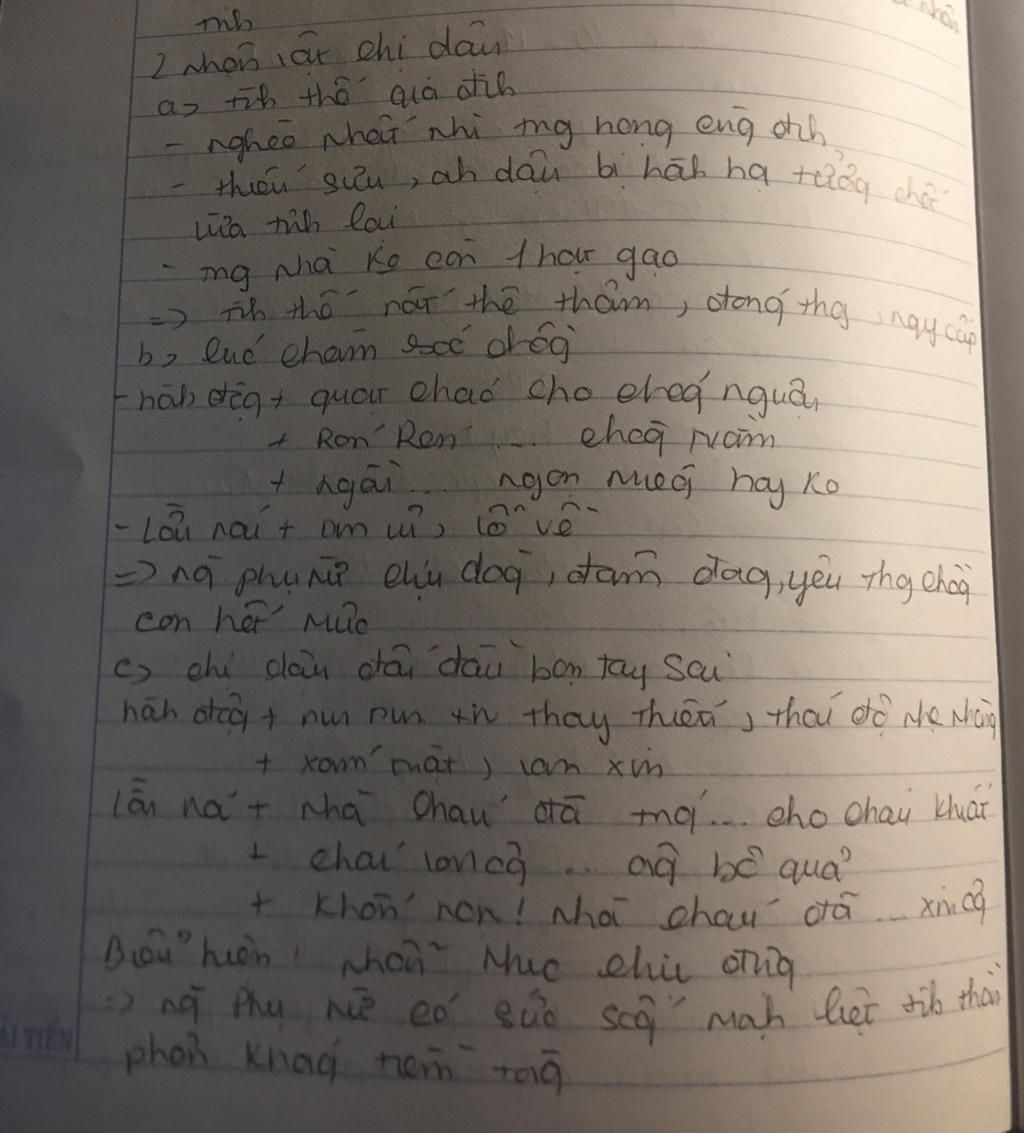 2 nhân vật chị dậu
a> tìh thế gia đìh
- nghèo nhất nhì trg hong cùg đih
- thiếu sưu, ah dậu bị hàh hạ tưởg chết
vừa tỉh lại
- trg nhà ko còn 1 hạt gạo
=> tìh thế rất thê thảm, đáng thg, nguy cấp
b> lúc chăm sóc chồg
- hàh độg + quạt cháo cho chóg nguội
+ Rón Rén ... chồg nằm
+ ngồi ... ngon miệg hay ko
- Lời nói + ôm ủi, lỗ về
=> ng phụ nữ chịu đog, đảm đag, yêu thg chồg
con hết mức
c> chị dậu đối đầu bọn tay sai
hàh độg + run run xin thay thiết, thái độ nhẹ nhàng
+ xám mặt, van xin
lời nói + Nhà cháu đã tng ... cho cháu khất
+ cháu van ôg ... ôg bỏ qua
+ Khốn nạn! nhà cháu đã ... xin ôg
Biểu hiện: nhẫn nhục chịu đựg
=> ng phụ nữ có sức sốg mạh liệt tih thần
phản khág tiềm tàg
ẢI TIẾN